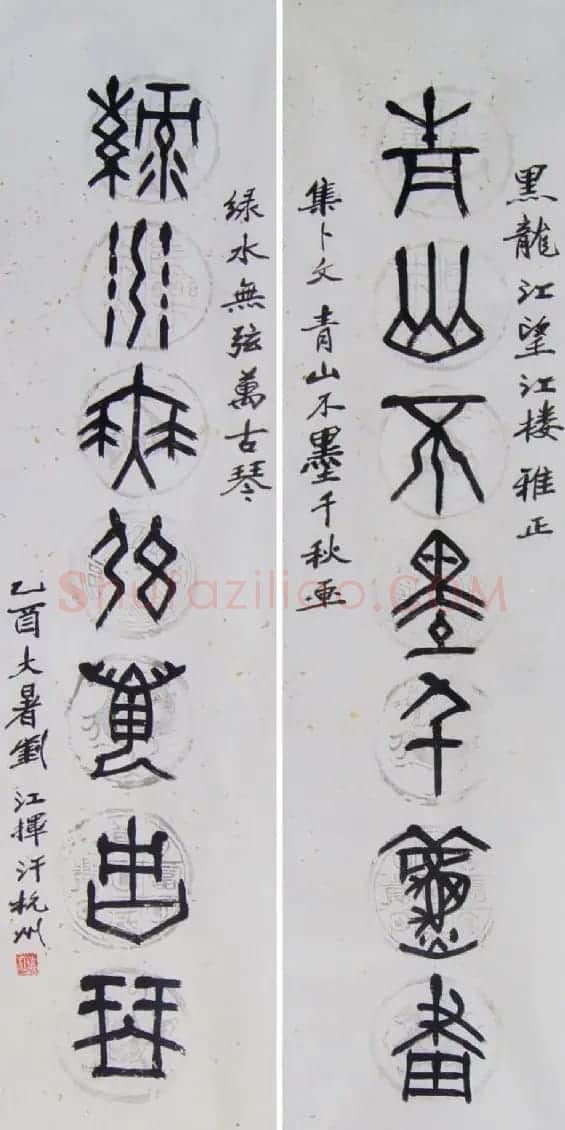 黑龍江望江楼雅正
青山不墨千秋畫
集卜文 青山不墨千秋画
綠水無弦萬古琴
绿水無弦萬古琴
乙酉大暑劉江揮汗杭州
shufaziliao.com